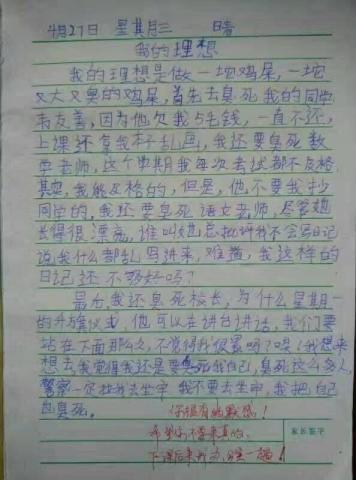 4月27日 星期三 晴
我的理想
我的理想是做一坨鸡屎,一坨
又大又臭的鸡屎,首先去臭死我的同学
韦友善,因为他欠我5毛钱,一直不还,
上课还拿我本子乱画,我还要臭死数
学老师,这个学期我每次考试都不及格,
其实,我能及格的,但是,他不要我抄
同学的,我还要臭死语文老师,尽管她
长得很漂亮,谁叫她总批评我不会写日记
说我什么都乱写进来,难道,我这样的
日记还不够好吗?
最后,我还臭死校长,为什么星期一
的升旗仪式,他可以在讲台讲话,我们要
站在下面那么久,不觉得我很累吗?唉!我想来
想去,我觉得我还是要臭死我自己,臭死这么多人,
警察一定拉我去坐牢,我不要去坐牢,我把自己
也臭死。
你很有幽默感!
希望你不要来真的。
下课后来我办公室一趟!
家长签字